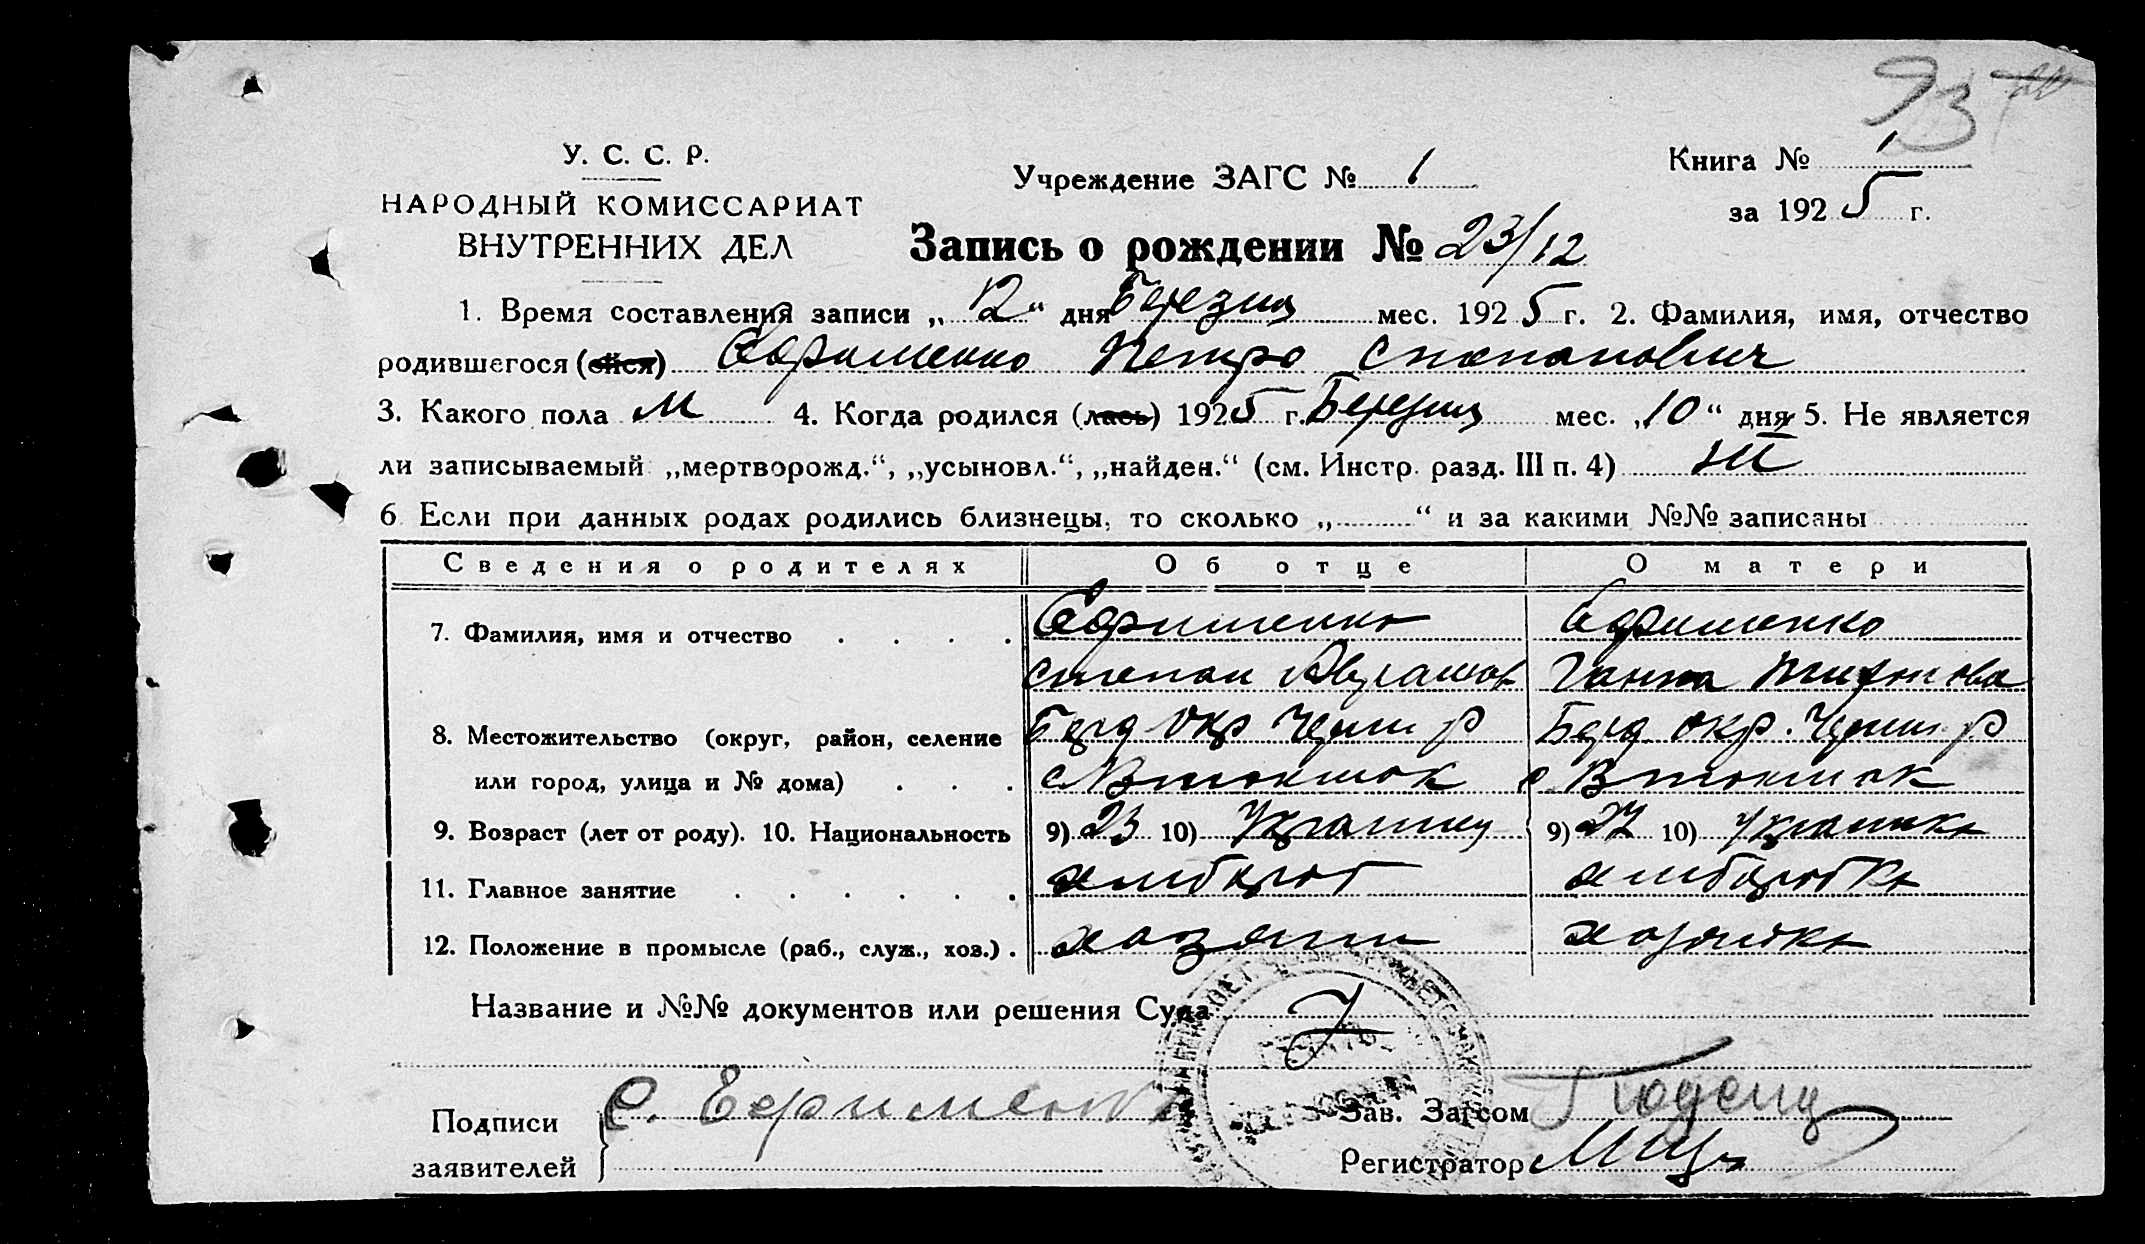 93
У. С. С. Р.
НАРОДНЫЙ КОМИССАРИАТ
ВНУТРЕННИХ ДЕЛ
Учреждение ЗАГС № 1
Книга № 1
за 1925 г.
Запись о рождении № 23/12
1. Время составления записи „12“ дня Березня мес. 1925 г. 2. Фамилия, имя, отчество
родившегося (ейся) Єфрименко Петро Степанович
3. Какого пола М 4. Когда родился (лась) 1925 г. Березня мес. „10“ дня 5. Не является
ли записываемый „мертворожд.“, „усыновл.“, „найден.“ (см. Инстр. разд. III п. 4) Ні
6. Если при данных родах родились близнецы, то сколько „ “ и за какими №№ записаны
Сведения о родителях Об отце О матери
7. Фамилия, имя и отчество Єфрименко Єфрименко
Степан Ганна
8. Местожительство (округ, район, селение Берд Окр Черн Р Берд окр. Черн Р
или город, улица и № дома) с
9. Возраст (лет от роду). 10. Национальность 9) 23 10) Українец 9) 10) Українка
11. Главное занятие хлібороб хліборобка
12. Положение в промысле (раб., служ., хоз.) хозяин хозяйка
Название и №№ документов или решения Суда
Подписи С. Ефрименко Зав. Загсом
заявителей Регистратор